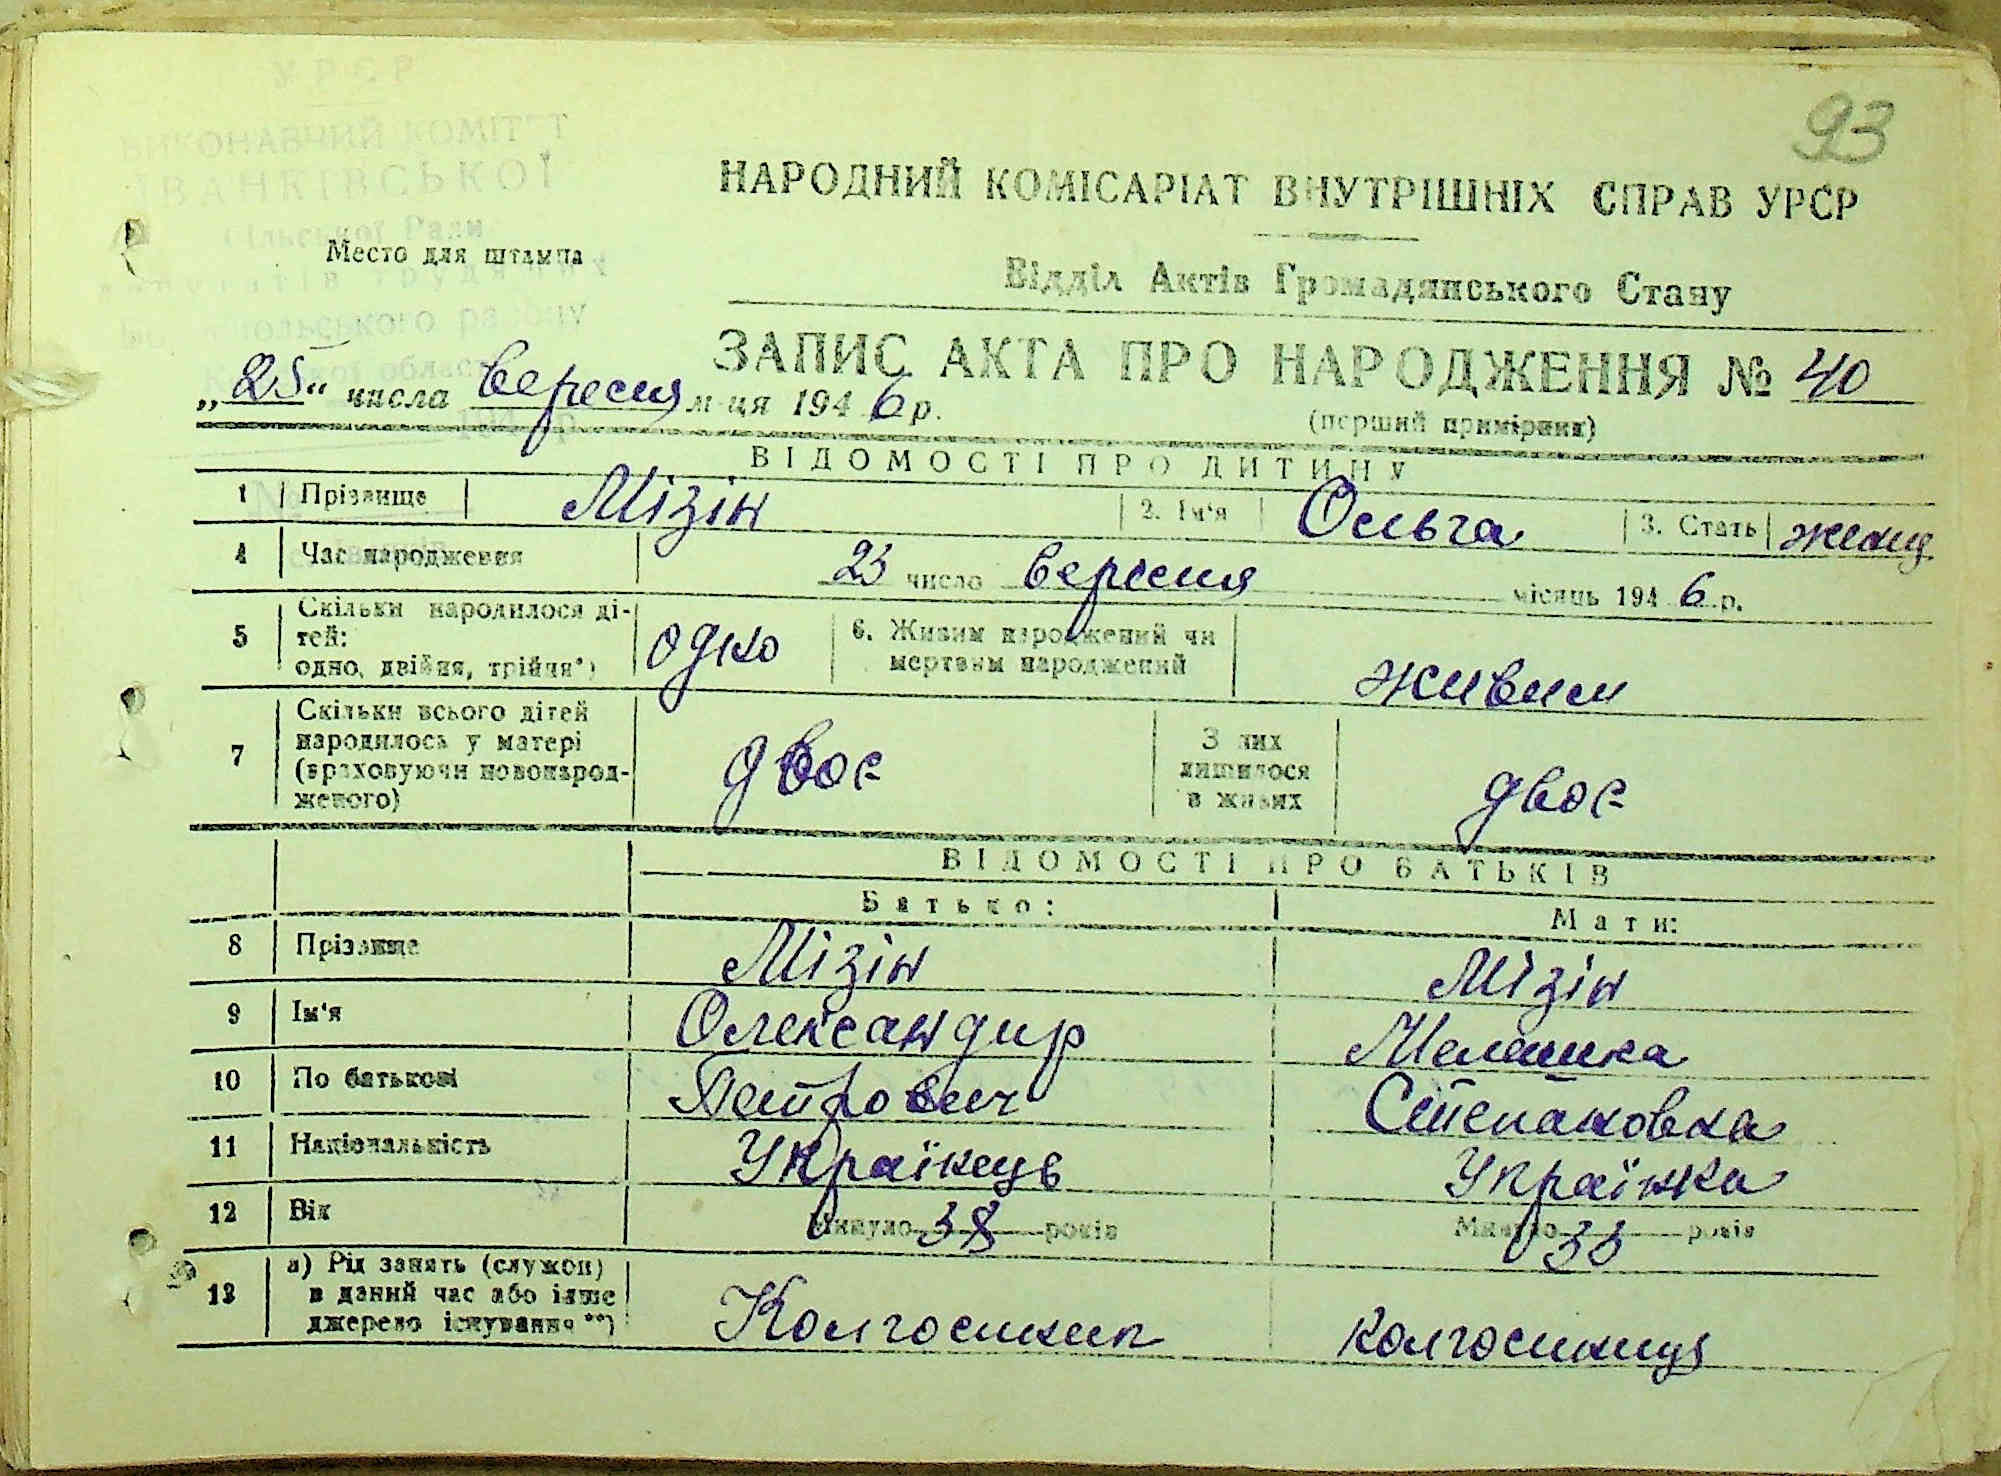 93
УРСР
ВИКОНАВЧИЙ КОМІТЕТ
ІВАНКІВСЬКОЇ
сільської Ради
депутатів трудящих
Бориспольського району
Київської області
Место для штампа
НАРОДНИЙ КОМІСАРІАТ ВНУТРІШНІХ СПРАВ УРСР
Відділ Актів Громадянського Стану
ЗАПИС АКТА ПРО НАРОДЖЕННЯ № 40
(перший примірник)
„25“ числа вересня м-ця 1946 р.
ВІДОМОСТІ ПРО ДИТИНУ
1 Прізвище Мізін 2. Ім'я Ольга 3. Стать жіноч
4 Час народження 23 число вересня місяць 1946 р.
5 Скільки народилося ді-
тей:
одно, двійня, трійня*) одно 6. Живим народжений чи
мертвим народжений живим
7 Скільки всього дітей
народилось у матері
(враховуючи новонарод-
женого) двоє З них
лишилося
в живих двоє
ВІДОМОСТІ ПРО БАТЬКІВ
Батько: Мати:
8 Прізвище Мізін Мізін
9 Ім'я Олександир Мелашка
10 По батькові Петрович Степановна
11 Національність Українець Українка
12 Вік Минуло 38 років Минуло 33 років
13 а) Рід занять (служби)
в даний час або інше
джерело існування **) Колгоспник колгоспниця